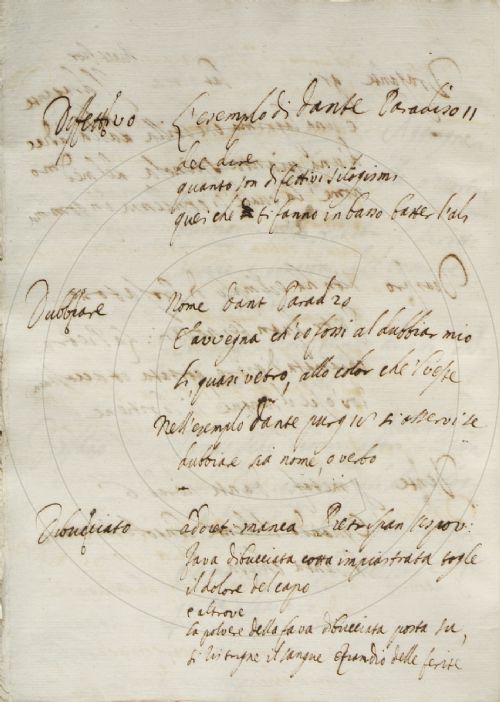 Difettivo L'esemplo di Dante Paradiso 11
dee dire
quanto son difettivi silogismi
quei che ti fanno in basso batter l'ali
Dubbiare Nome Dant Parad 20
E avvegna ch'io fossi al dubbiar mio
li quasi vetro, allo color ch'el veste
Nell'esemplo Dante purg si osservi se
dubbiare sia nome, o verbo
Dibucciato manca Pietr ispan
fava dibucciata cotta impiastrata togle
il dolore del capo
e altrove
la polvere della fava dibucciata posta su,
si ristrigne il sangue eziandio delle ferite